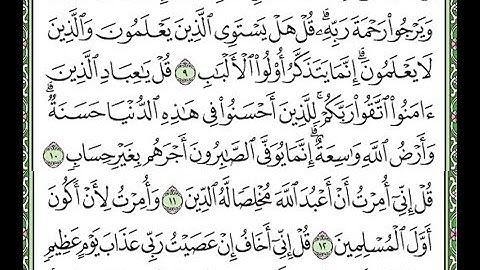 وَيَرْجُوا۟ رَحْمَةَ رَبِّهِۦ ۗ قُلْ هَلْ يَسْتَوِى ٱلَّذِينَ يَعْلَمُونَ وَٱلَّذِينَ
لَا يَعْلَمُونَ ۗ إِنَّمَا يَتَذَكَّرُ أُو۟لُوا۟ ٱلْأَلْبَـٰبِ ٩ قُلْ يَـٰعِبَادِ ٱلَّذِينَ
ءَامَنُوا۟ ٱتَّقُوا۟ رَبَّكُمْ ۚ لِلَّذِينَ أَحْسَنُوا۟ فِى هَـٰذِهِ ٱلدُّنْيَا حَسَنَةٌ ۗ
وَأَرْضُ ٱللَّهِ وَٰسِعَةٌ ۗ إِنَّمَا يُوَفَّى ٱلصَّـٰبِرُونَ أَجْرَهُم بِغَيْرِ حِسَابٍ ١٠
قُلْ إِنِّىٓ أُمِرْتُ أَنْ أَعْبُدَ ٱللَّهَ مُخْلِصًا لَّهُ ٱلدِّينَ ١١ وَأُمِرْتُ لِأَنْ أَكُونَ
أَوَّلَ ٱلْمُسْلِمِينَ ١٢ قُلْ إِنِّىٓ أَخَافُ إِنْ عَصَيْتُ رَبِّى عَذَابَ يَوْمٍ عَظِيمٍ